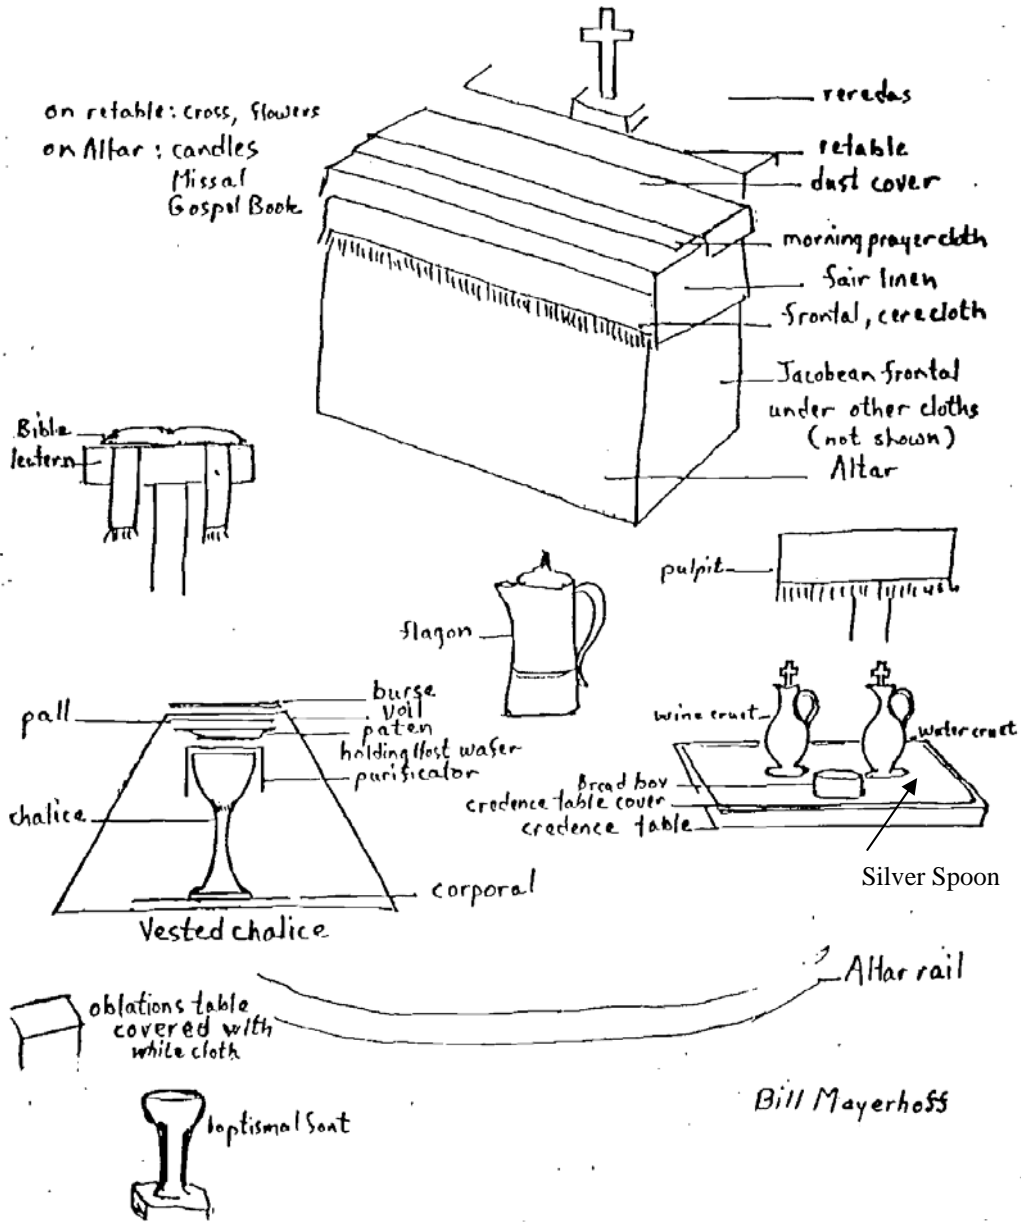 on retable: cross, flowers
on Altar: candles
Missal
Gospel Book
reredas
retable
dust cover
morning prayer cloth
fair linen
frontal, cerecloth
Jacobean frontal
under other cloths
(not shown)
Altar
Bible
lectern
pulpit
flagon
burse
pall
voil
paten
holding Host wafer
purificator
chalice
corporal
Vested chalice
wine cruet
water cruet
Bread box
credence table cover
credence table
Silver Spoon
Altar rail
oblations table
covered with
white cloth
baptismal font
Bill Mayerhoff